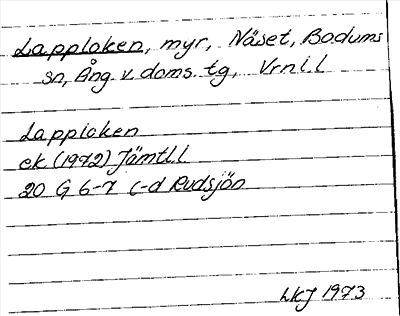 Lapploken, myr, Näset, Bodums
sn, Ång. v. doms. tg, Vrnl.l
Lapploken
ek (1972) Jämtl.l
20 G 6-7 c-d Rudsjön
LKJ 1973